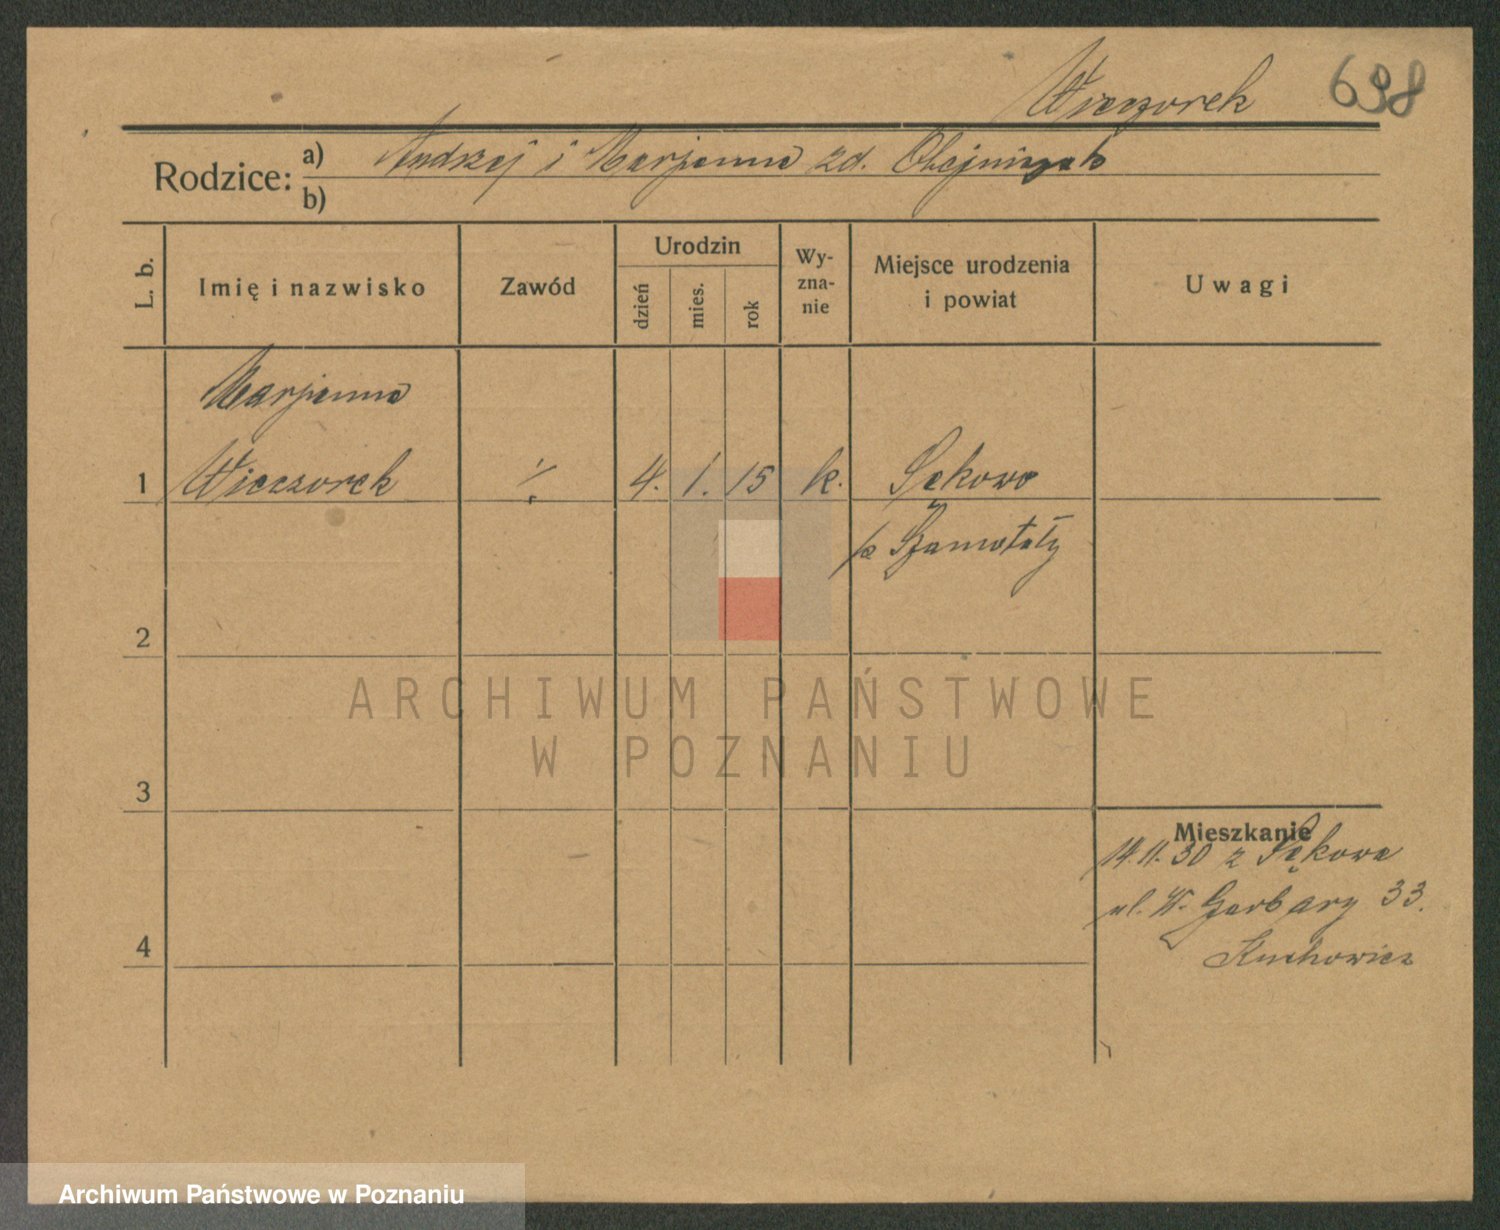 Wieczorek 698
Rodzice: a) Andrzej i Marjanna zd. Olejniczak
b)
L. b.
Imię i nazwisko
Zawód
Urodzin
dzień
mies.
rok
Wy-
zna-
nie
Miejsce urodzenia
i powiat
Uwagi
Marjanna
1 Wieczorek 4. 1. 15 k. Sękowo
p. Szamotały
2
3
4
Mieszkanie
14.11.30 z Sękowa
ul. W. Garbary 33.
Kuchowicz
ARCHIWUM PAŃSTWOWE
W POZNANIU
Archiwum Państwowe w Poznaniu